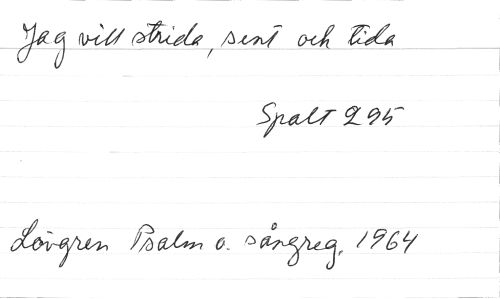 Jag vill strida, sent och tida
Spalt 295
Lövgren Psalm o. sångreg. 1964